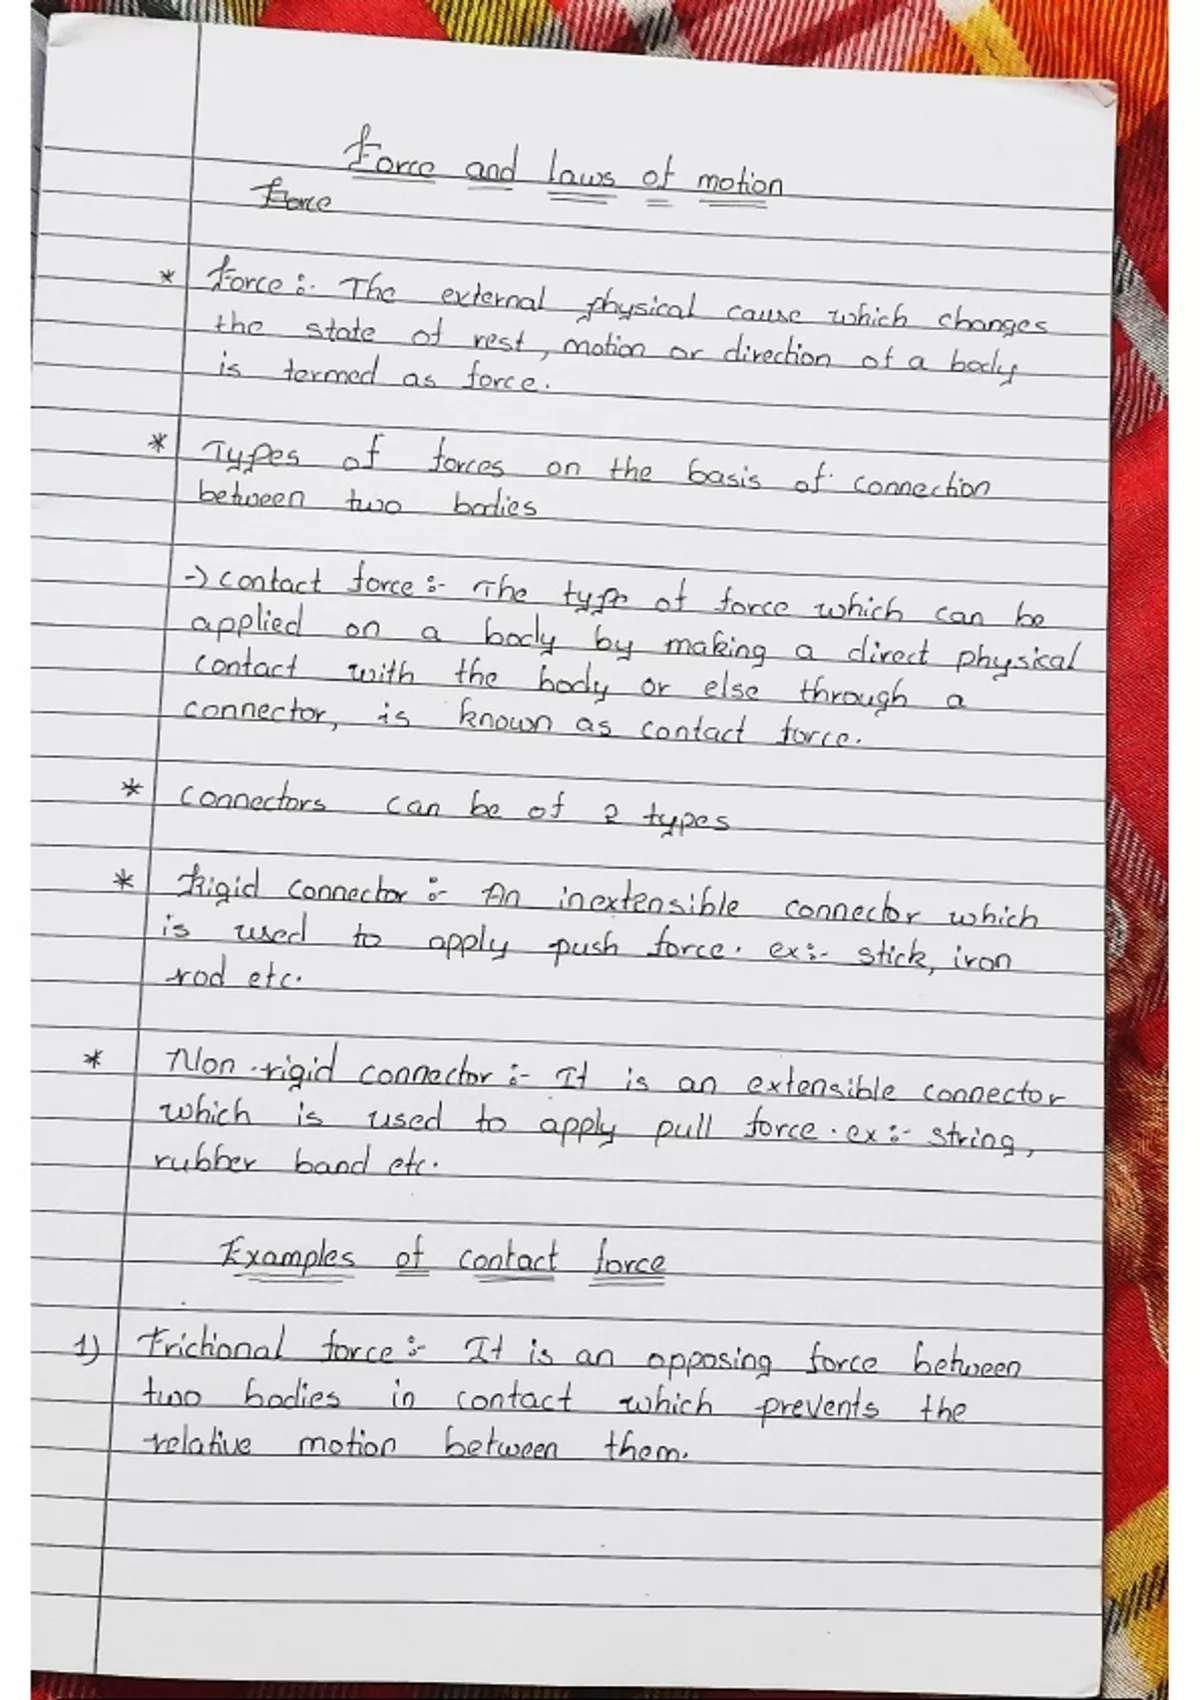 Force and laws of motion
Force
* Force :- The external physical cause which changes
the state of rest, motion or direction of a body
is termed as force.
* Types of forces on the basis of connection
between two bodies
-> contact force :- The type of force which can be
applied on a body by making a direct physical
contact with the body or else through a
connector, is known as contact force.
* connectors can be of 2 types
* Rigid connector :- An inextensible connector which
is used to apply push force. ex:- stick, iron
rod etc.
* Non-rigid connector :- It is an extensible connector
which is used to apply pull force. ex:- string,
rubber band etc.
Examples of contact force
1) Frictional force :- It is an opposing force between
two bodies in contact which prevents the
relative motion between them.